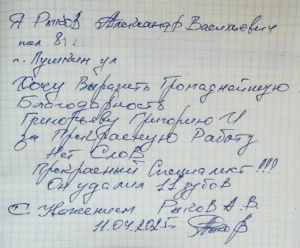 Я Рыков Александр Васильевич
г. Пушкин ул
Хочу Выразить Громаднейшую
Благодарность
Григорьеву Григорию И
за Прекрасную Работу
Нет Слов
Прекрасный Специалист !!!
Он удалил 11 зубов
С Уважением Рыков А. В.
11.04.2025г